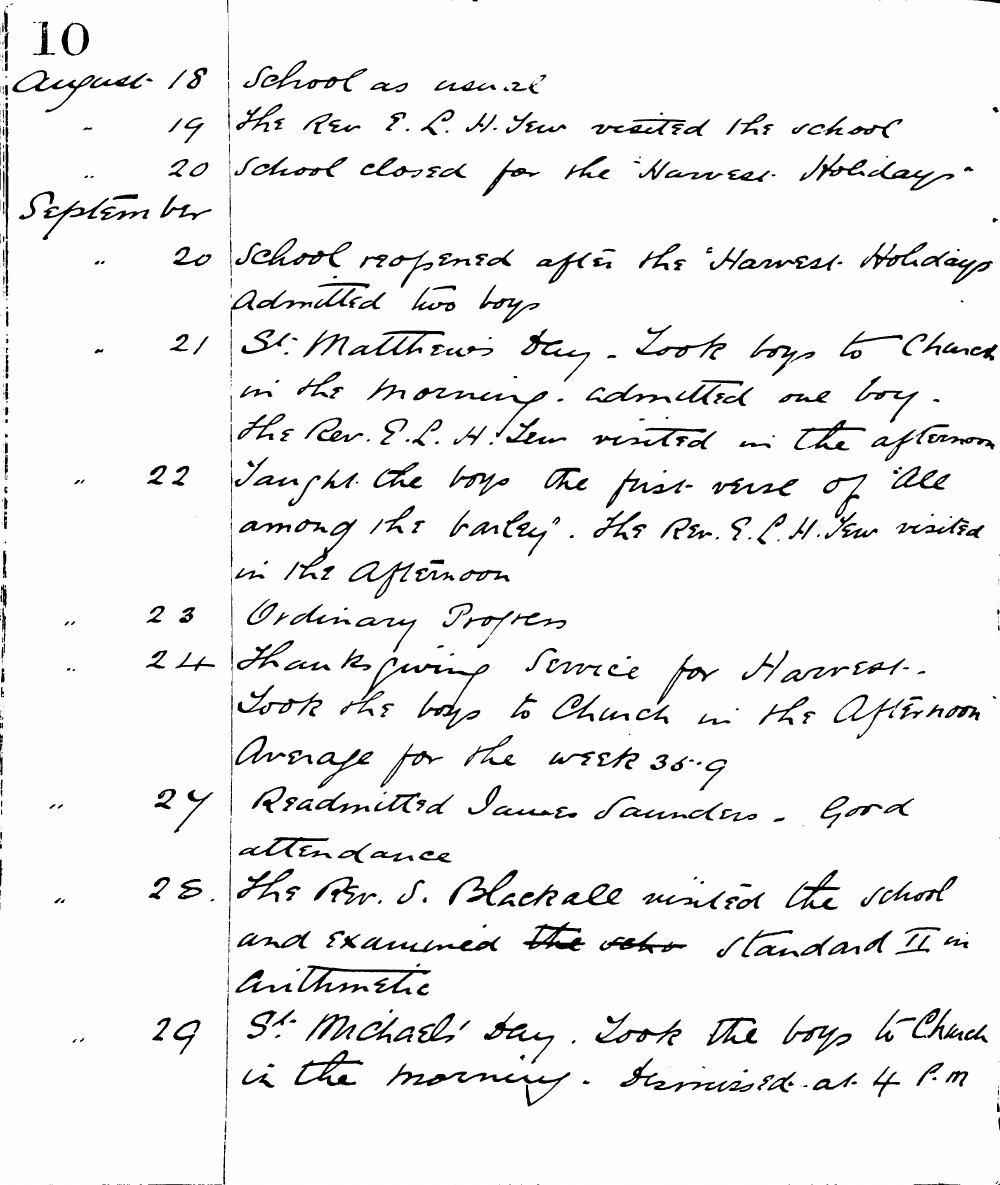 10
August 18 School as usual
" 19 The Rev E. L. H. Tew visited the school
" 20 School closed for the "Harvest Holidays"
September
" 20 School reopened after the "Harvest Holidays
Admitted two boys
" 21 St. Matthew's Day - Took boys to Church
in the morning. admitted one boy.
The Rev. E. L. H. Tew visited in the afternoon
" 22 Taught the boys the first verse of "All
among the barley". The Rev. E. L. H. Tew visited
in the Afternoon
" 23 Ordinary Progress
" 24 Thanksgiving Service for Harvest.
Took the boys to Church in the Afternoon
Average for the week 35.9
" 27 Readmitted James Saunders - Good
attendance
" 28. The Rev. S. Blackall visited the school
and examined the scho Standard II in
Arithmetic
" 29 St. Michaels' Day. Took the boys to Church
in the morning. Dismissed at 4 P.m